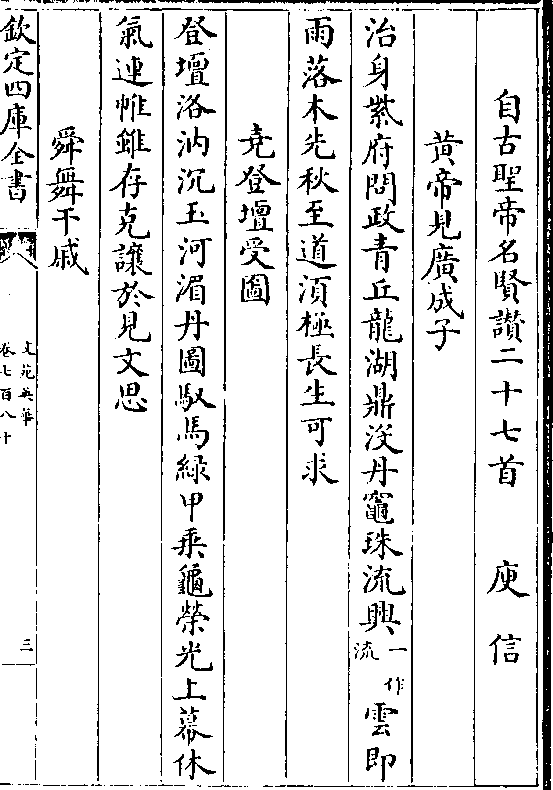 自古聖帝名賢讃二十七首 庾信
黄帝見廣成子
治身紫府問政青丘龍湖鼎没丹竈珠流興一作流雲即
雨落木先秋至道須極長生可求
堯登壇受圖
登壇洛汭沉玉河湄丹圖馭馬綠甲乘龜榮光上幕休
氣連帷雖存克讓於見文思
舜舞干戚
欽定四庫全書
文苑英華
卷七百八十
三